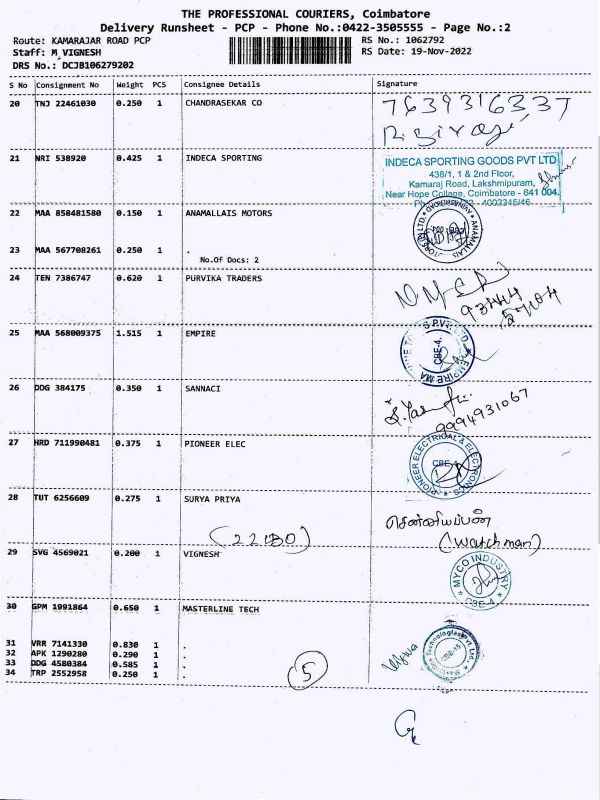 THE PROFESSIONAL COURIERS, Coimbatore
Delivery Runsheet - PCP - Phone No.:0422-3505555 - Page No.:2
Route: KAMARAJAR ROAD PCP RS No.: 1062792
Staff: M VIGNESH RS Date: 19-Nov-2022
DRS No.: DCJB106279202
S No Consignment No Weight PCS Consignee Details Signature
20 TNJ 22461030 0.250 1 CHANDRASEKAR CO 7639316337
21 NRI 538920 0.425 1 INDECA SPORTING
INDECA SPORTING GOODS PVT LTD
438/1, 1 & 2nd Floor,
Kamaraj Road, Lakshmipuram,
Near Hope College, Coimbatore - 641 004.
22 MAA 858481580 0.150 1 ANAMALLAIS MOTORS
ANAMALLAIS
23 MAA 567708261 0.250 1 .
No.Of Docs: 2
24 TEN 7386747 0.620 1 PURVIKA TRADERS
25 MAA 568009375 1.515 1 EMPIRE
CBE-4.
26 DDG 384175 0.350 1 SANNACI
9994931067
27 HRD 711990481 0.375 1 PIONEER ELEC
PIONEER ELECTRICAL & ELECTRONICS
CBE-4
28 TUT 6256609 0.275 1 SURYA PRIYA
சென்னியப்பன்
(watchman)
29 SVG 4569021 0.200 1 VIGNESH
MYCO INDUSTRY
CBE-4
30 GPM 1991864 0.650 1 MASTERLINE TECH
31 VRR 7141330 0.830 1 .
32 APK 1290280 0.290 1 .
33 DDG 4580384 0.585 1 .
34 TRP 2552958 0.250 1 .
Technologies Pvt. Ltd.
CBE-15
5